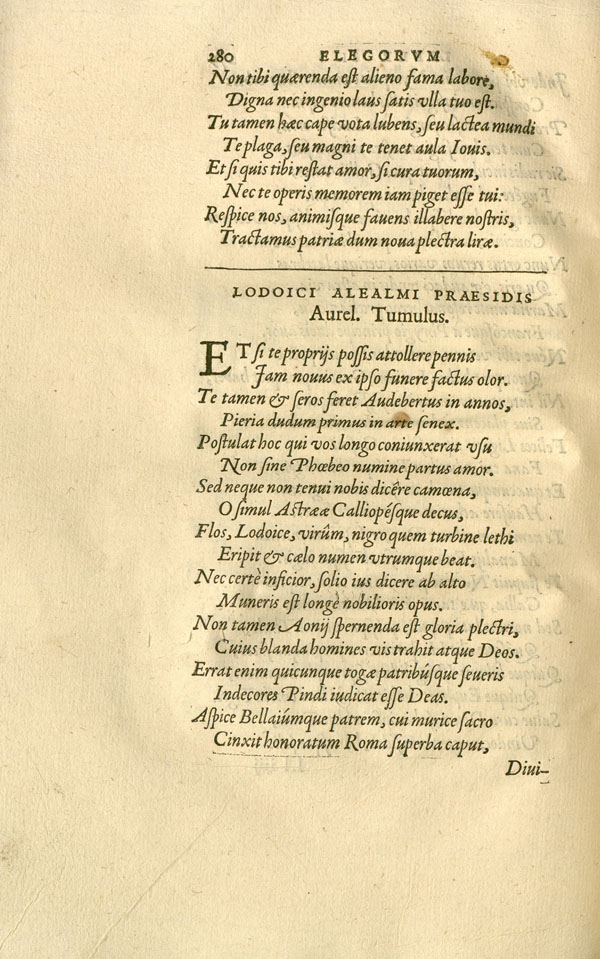 280 ELEGORVM
Non tibi quærenda est alieno fama labore,
Digna nec ingenio laus satis vlla tuo est.
Tu tamen hæc cape vota lubens, seu lactea mundi
Te plaga, seu magni te tenet aula Iouis.
Et si quis tibi restat amor, si cura tuorum,
Nec te operis memorem iam piget esse tui:
Respice nos, animisque fauens illabere nostris,
Tractamus patriæ dum noua plectra liræ.
LODOICI ALEALMI PRAESIDIS
Aurel. Tumulus.
ET si te proprijs possis attollere pennis
Jam nouus ex ipso funere factus olor.
Te tamen & seros feret Audebertus in annos,
Pieria dudum primus in arte senex.
Postulat hoc qui vos longo coniunxerat vsu
Non sine Phœbeo numine partus amor.
Sed neque non tenui nobis dicêre camœna,
O simul Astrææ Calliopésque decus,
Flos, Lodoice, virûm, nigro quem turbine lethi
Eripit & cælo numen vtrumque beat.
Nec certè inficior, solio ius dicere ab alto
Muneris est longè nobilioris opus.
Non tamen Aonij spernenda est gloria plectri,
Cuius blanda homines vis trahit atque Deos.
Errat enim quicunque togæ patribúsque seueris
Indecores Pindi iudicat esse Deas.
Aspice Bellaiúmque patrem, cui murice sacro
Cinxit honoratum Roma superba caput,
Diui-